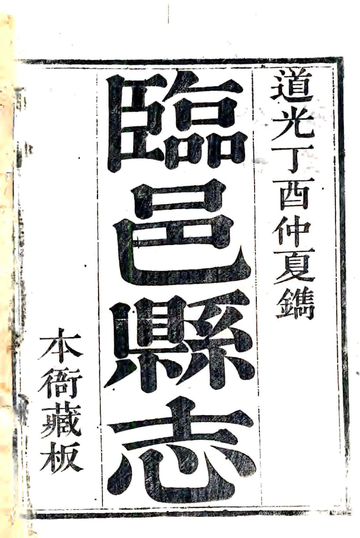 道光丁酉仲夏鐫
臨邑縣志
本衙藏板